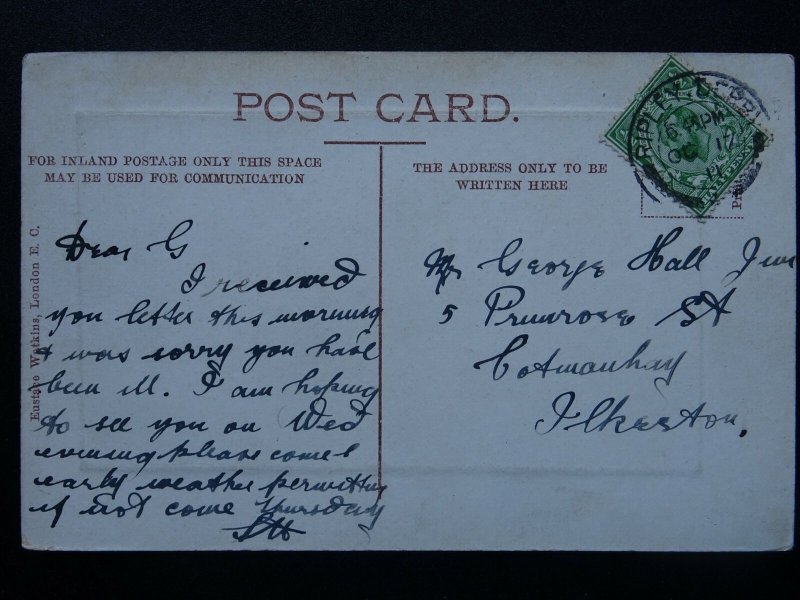 POST CARD.
FOR INLAND POSTAGE ONLY THIS SPACE
MAY BE USED FOR COMMUNICATION
THE ADDRESS ONLY TO BE
WRITTEN HERE
RIPLEY. DERBY
6 PM
OC 17
11
Eustace Watkins, London E. C.
Dear G
I received
you letter this morning
& was sorry you have
been ill. I am hoping
to see you on Wed
evening please come
early weather permitting
if not come Thursday
Mr George Hall Jun
5 Primrose St
Cotmanhay
Ilkeston,